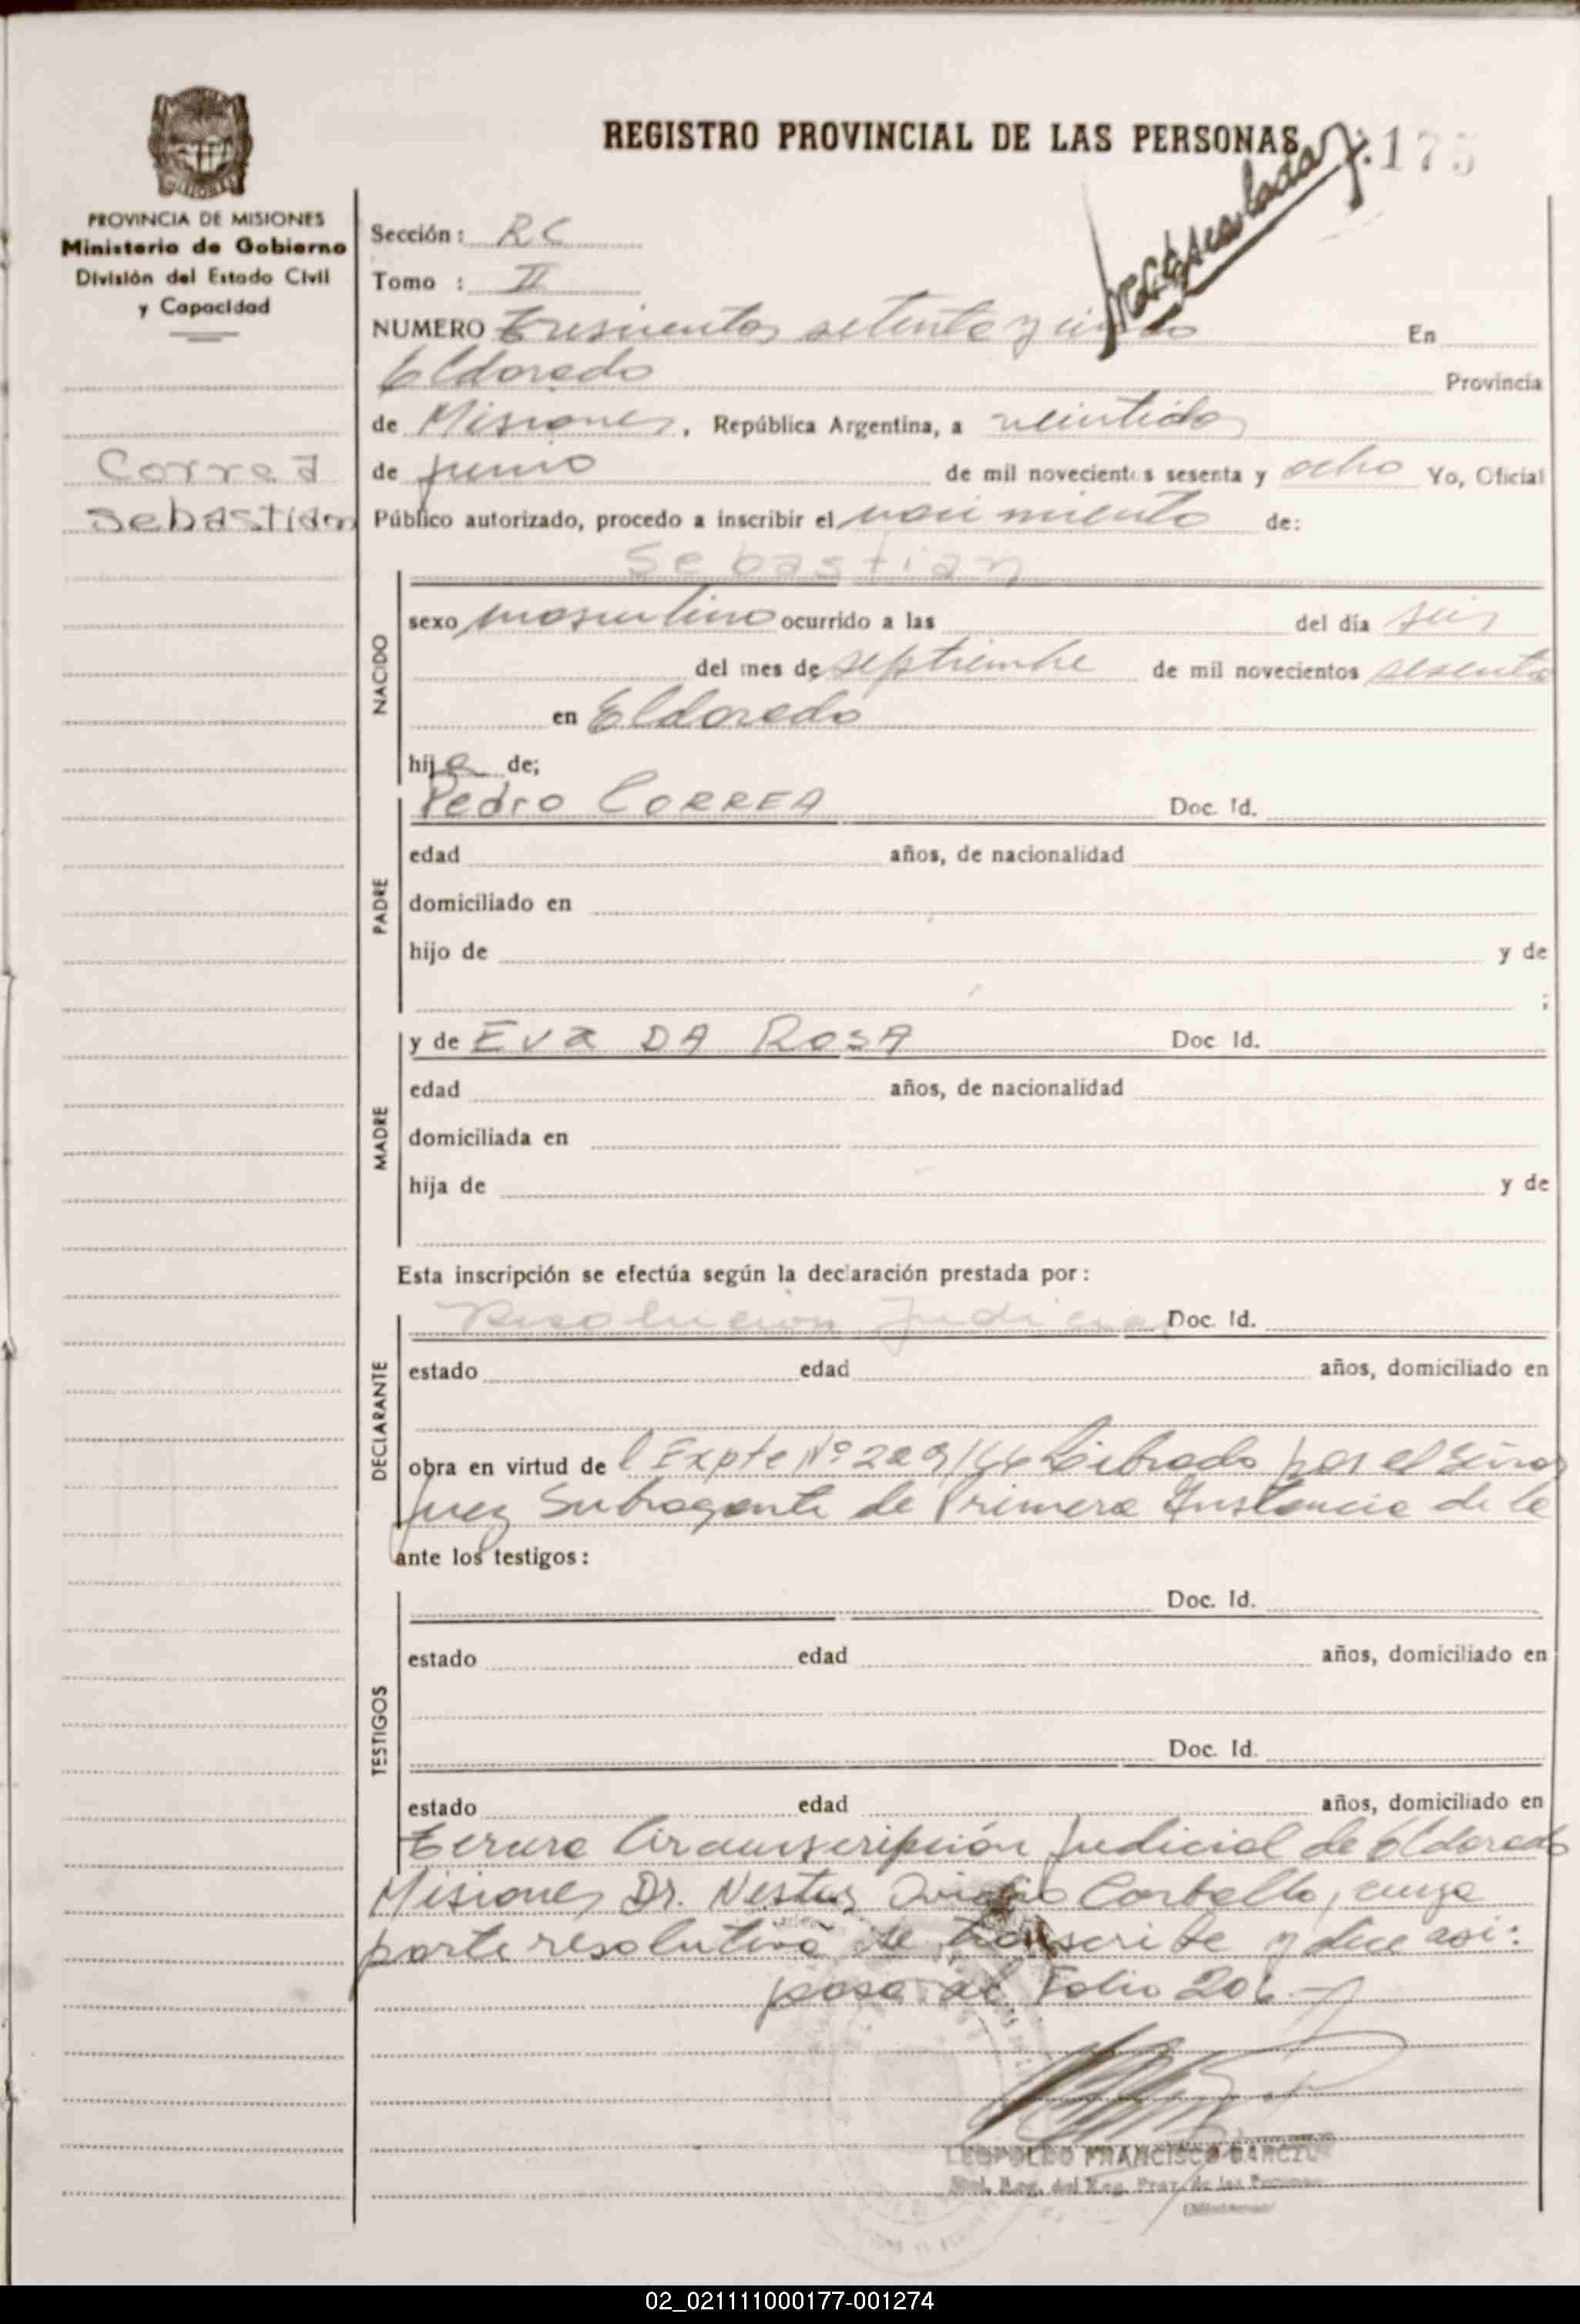 REGISTRO PROVINCIAL DE LAS PERSONAS
175
PROVINCIA DE MISIONES
Ministerio de Gobierno
División del Estado Civil
y Capacidad
Correa
Sebastian
Sección: RC
Tomo : II
NUMERO Trescientos setenta y cinco En
Eldorado Provincia
de Misiones, República Argentina, a veintidos
de junio de mil novecientos sesenta y ocho Yo, Oficial
Público autorizado, procedo a inscribir el nacimiento de:
Sebastian
NACIDO
sexo masculino ocurrido a las del día seis
del mes de septiembre de mil novecientos sesenta
en Eldorado
hijo de;
PADRE
Pedro CORREA Doc. Id.
edad años, de nacionalidad
domiciliado en
hijo de y de
;
MADRE
y de Eva DA ROSA Doc Id.
edad años, de nacionalidad
domiciliada en
hija de y de
Esta inscripción se efectúa según la declaración prestada por:
DECLARANTE
Resolucion Judicial Doc. Id.
estado edad años, domiciliado en
obra en virtud de l Expte Nº Librado por el Señor
Juez Subrogante de Primera Instancia de la
ante los testigos:
TESTIGOS
Doc. Id.
estado edad años, domiciliado en
Doc. Id.
estado edad años, domiciliado en
Tercera Circunscripción Judicial de Eldorado
Misiones Dr. Nestor Carballo, cuya
parte resolutiva se transcribe y dice asi:
pasa al Folio 206
LEOPOLDO FRANCISCO GARCIA
del Reg. Prov. de las Personas
(Misiones)
02_021111000177-001274